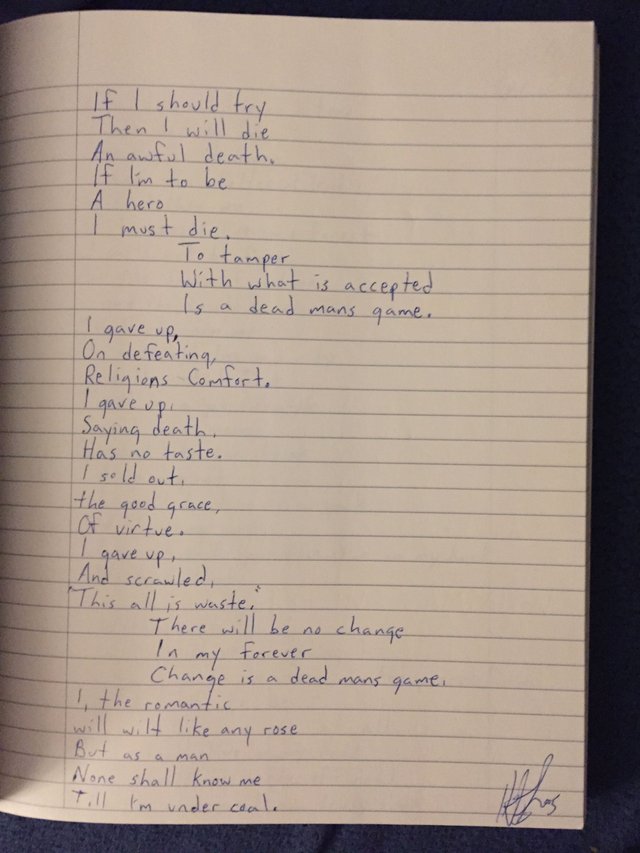 If I should try
Then I will die
An awful death.
If I'm to be
A hero
I must die.
To tamper
With what is accepted
Is a dead mans game.
I gave up,
On defeating,
Religions Comfort.
I gave up,
Saying death,
Has no taste.
I sold out,
the good grace,
Of virtue.
I gave up,
And scrawled,
"This all is waste."
There will be no change
In my forever
Change is a dead mans game.
I, the romantic
will wilt like any rose
But as a man
None shall know me
Till I'm under coal.